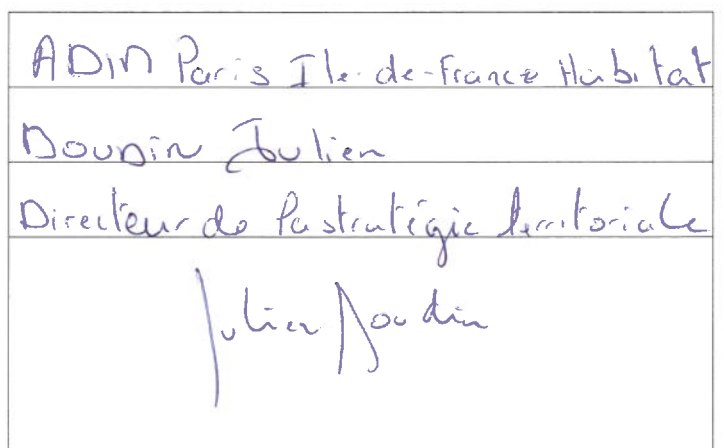 ADIM Paris Ile-de-France Habitat
DOUDIN Julien
Directeur de la stratégie territoriale
Julien Doudin